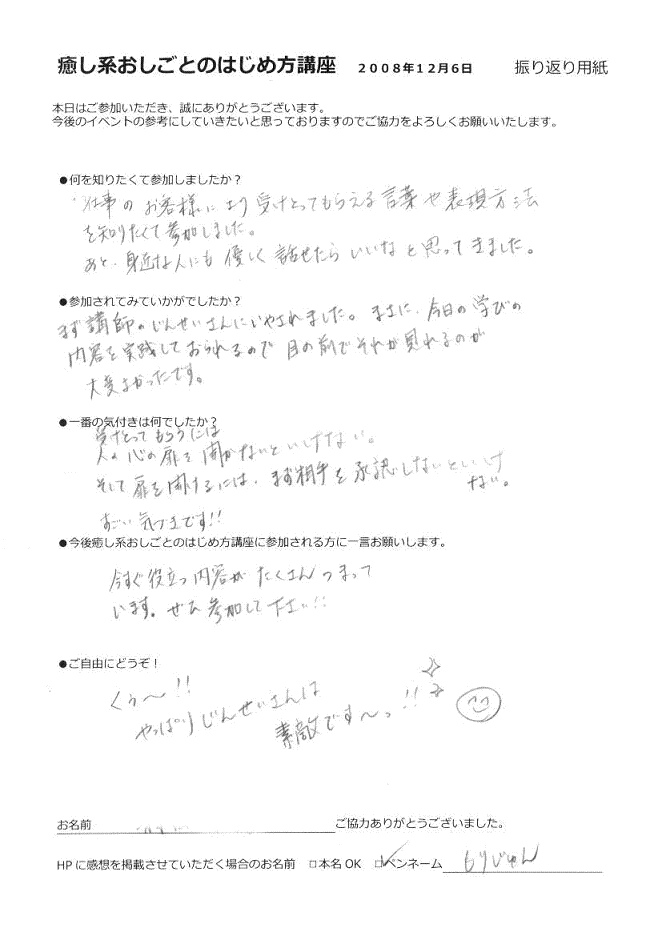 癒し系おしごとのはじめ方講座 2008年12月6日 振り返り用紙
本日はご参加いただき、誠にありがとうございます。
今後のイベントの参考にしていきたいと思っておりますのでご協力をよろしくお願いいたします。
●何を知りたくて参加しましたか？
仕事のお客様により受けとってもらえる言葉や表現方法
を知りたくて参加しました。
あと、身近な人にも優しく話せたらいいなと思ってきました。
●参加されてみていかがでしたか？
まず講師のじんせいさんにいやされました。まさに、今日の学びの
内容を実践しておられるので目の前でそれが見れるのが
大変よかったです。
●一番の気付きは何でしたか？
受けとってもらうには
人の心の扉を開かないといけない。
そして扉を開けるには、まず相手を承認しないといけ
ない。
すごい気づきです!!
●今後癒し系おしごとのはじめ方講座に参加される方に一言お願いします。
今すぐ役立つ内容がたくさんつまって
います。ぜひ参加して下さい!!
●ご自由にどうぞ！
くぅ〜!!
やっぱりじんせいさんは
素敵です〜っ!!
お名前 ご協力ありがとうございました。
HPに感想を掲載させていただく場合のお名前 □本名OK □ペンネーム もりじゅん